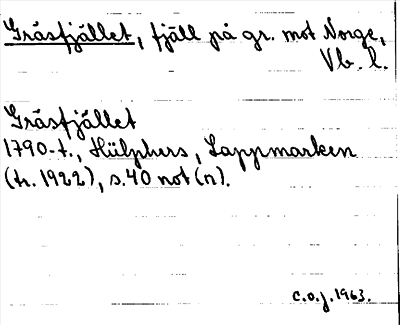 Gråsfjället, fjäll på gr. mot Norge,
Vb. l.
Gråsfjället
1790-t., Hülphers, Lappmarken
(tr. 1922), s. 40 not (n).
C.O.J. 1963.